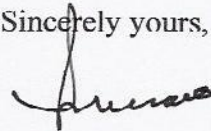 Sincerely yours,